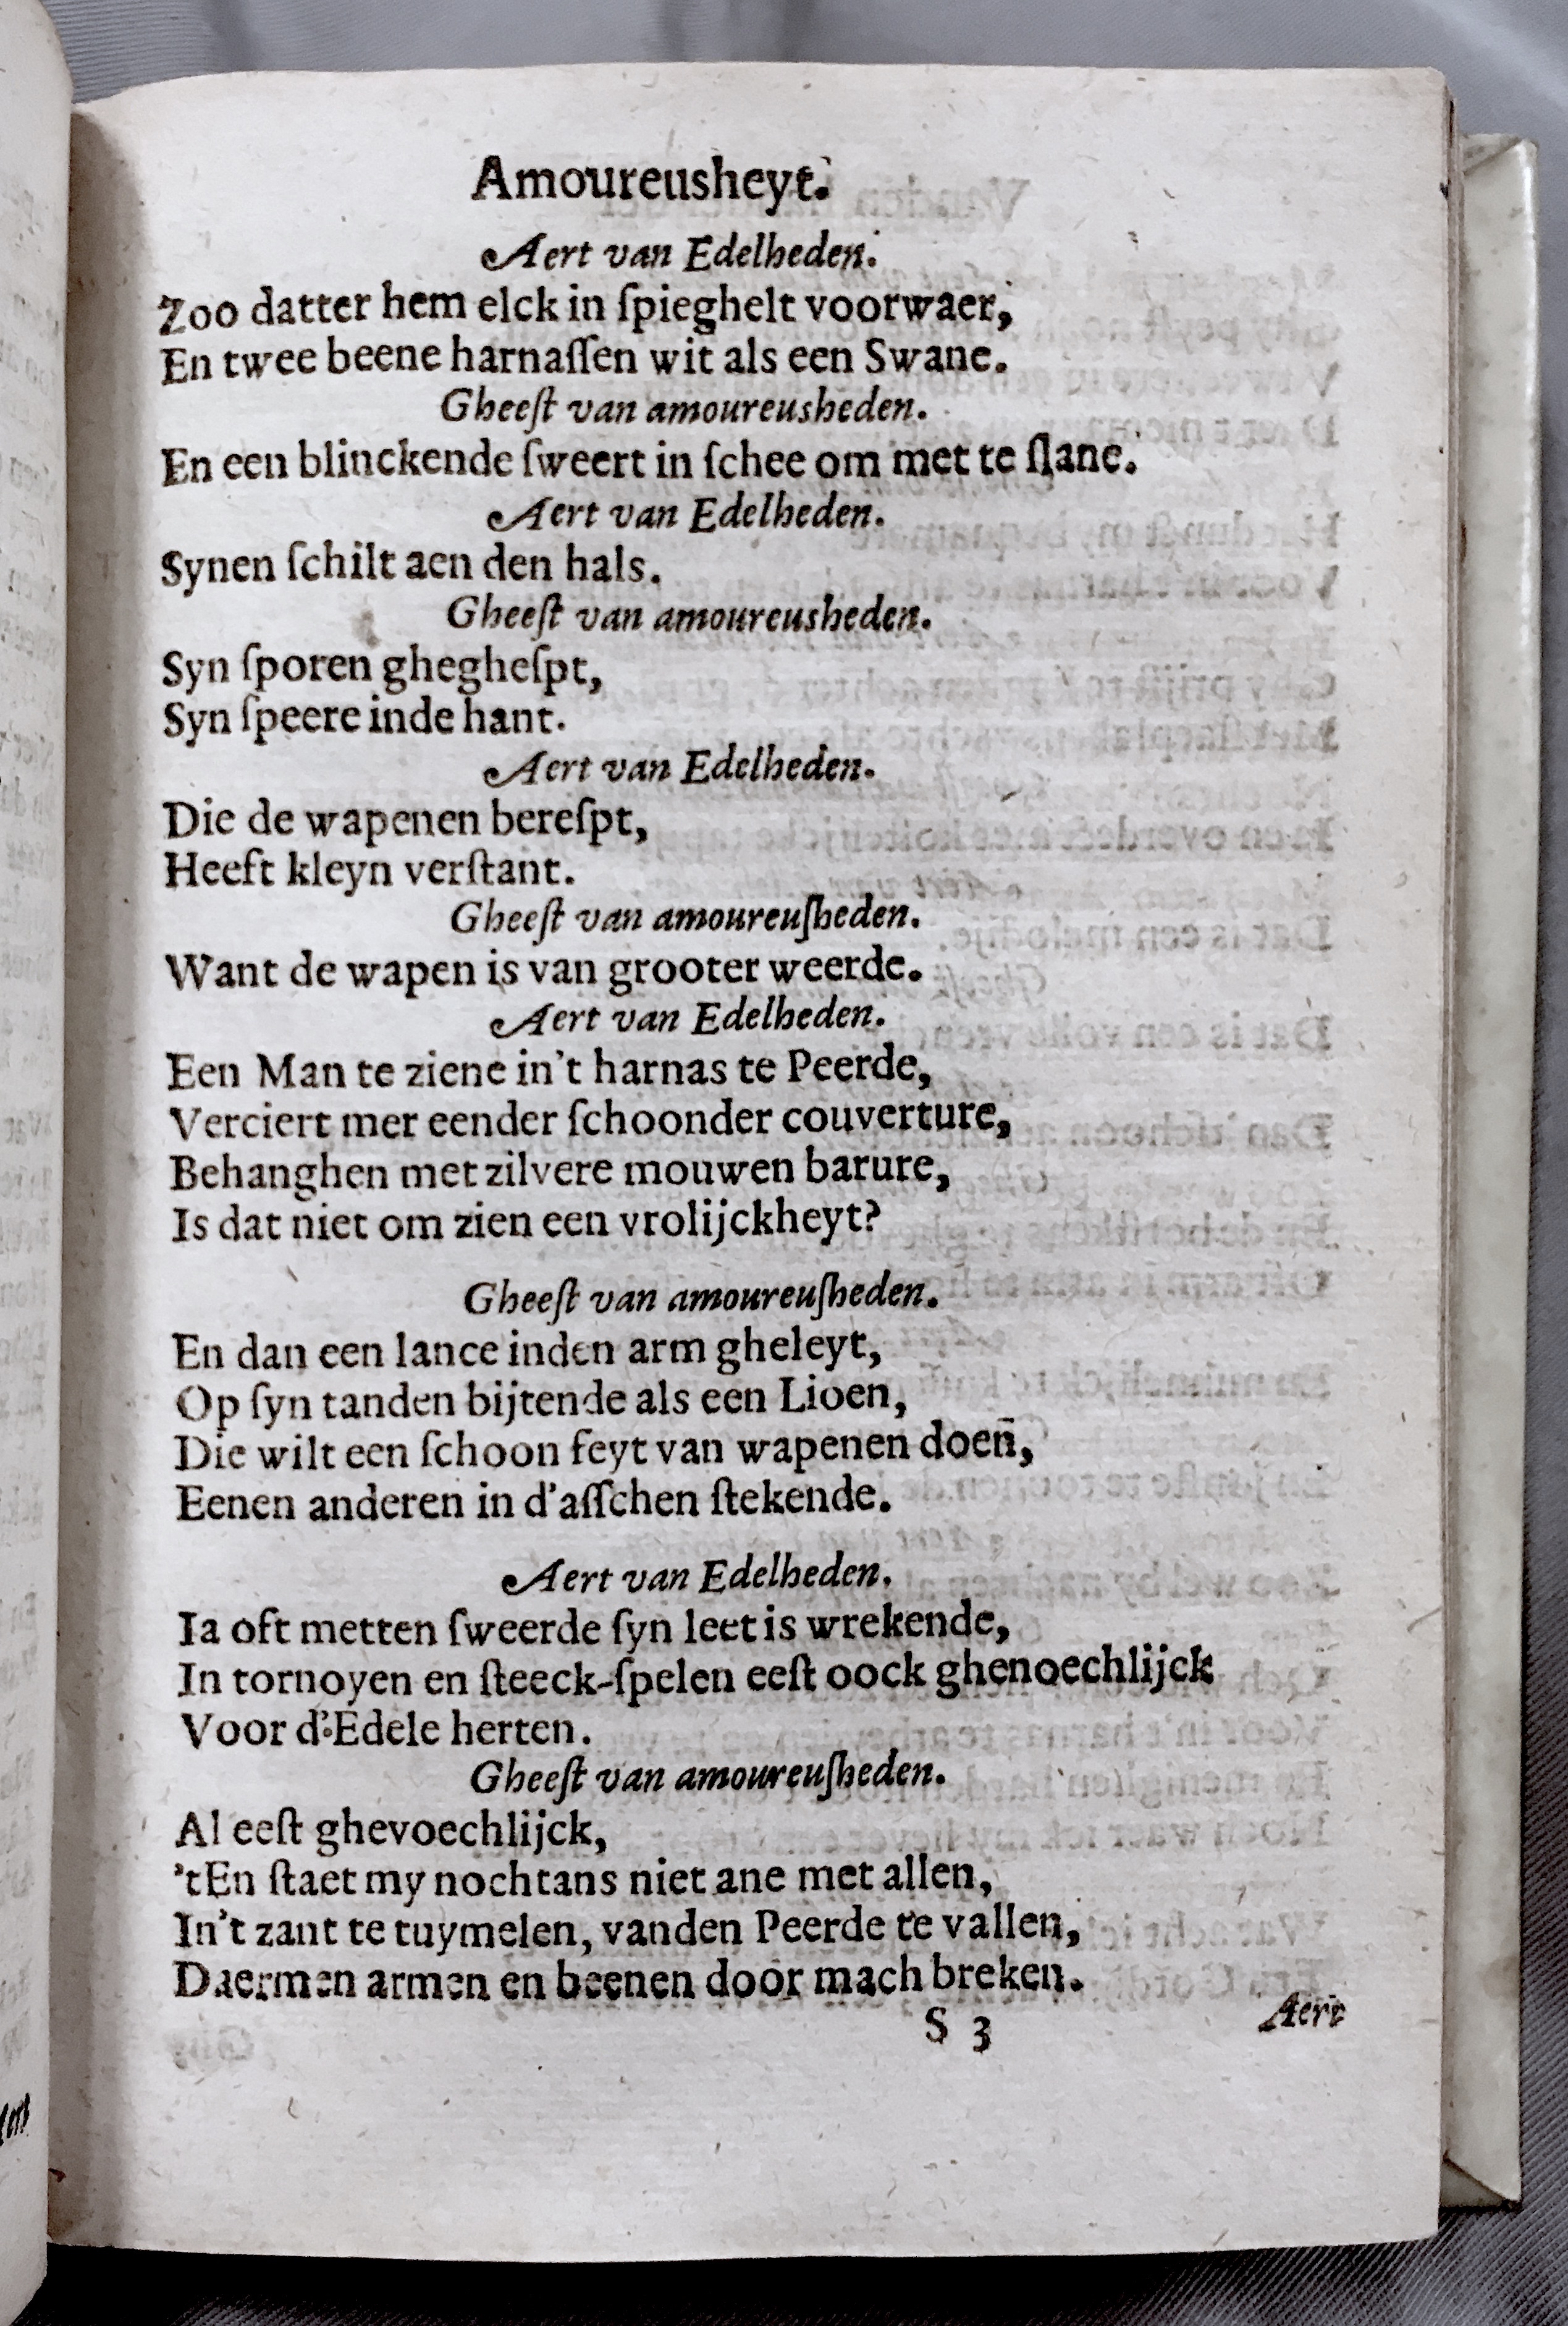 Amoureusheyt.
Aert van Edelheden.
Zoo datter hem elck in ſpieghelt voorwaer,
En twee beene harnaſſen wit als een Swane.
Gheeſt van amoureusheden.
En een blinckende ſweert in ſchee om met te ſlane.
Aert van Edelheden.
Synen ſchilt aen den hals.
Gheeſt van amoureusheden.
Syn ſporen ghegheſpt,
Syn ſpeere inde hant.
Aert van Edelheden.
Die de wapenen bereſpt,
Heeft kleyn verſtant.
Gheeſt van amoureuſheden.
Want de wapen is van grooter weerde.
Aert van Edelheden.
Een Man te ziene in't harnas te Peerde,
Verciert mer eender ſchoonder couverture,
Behanghen met zilvere mouwen barure,
Is dat niet om zien een vrolijckheyt?
Gheeſt van amoureuſheden.
En dan een lance inden arm gheleyt,
Op ſyn tanden bijtende als een Lioen,
Die wilt een ſchoon feyt van wapenen doen̄,
Eenen anderen in d'aſſchen ſtekende.
Aert van Edelheden.
Ia oft metten ſweerde ſyn leet is wrekende,
In tornoyen en ſteeck-ſpelen eeſt oock ghenoechlijck
Voor d'Edele herten.
Gheeſt van amoureuſheden.
Al eeſt ghevoechlijck,
'tEn ſtaet my nochtans niet ane met allen,
In't zant te tuymelen, vanden Peerde te vallen,
Daermen armen en beenen door mach breken.
S 3
Aert